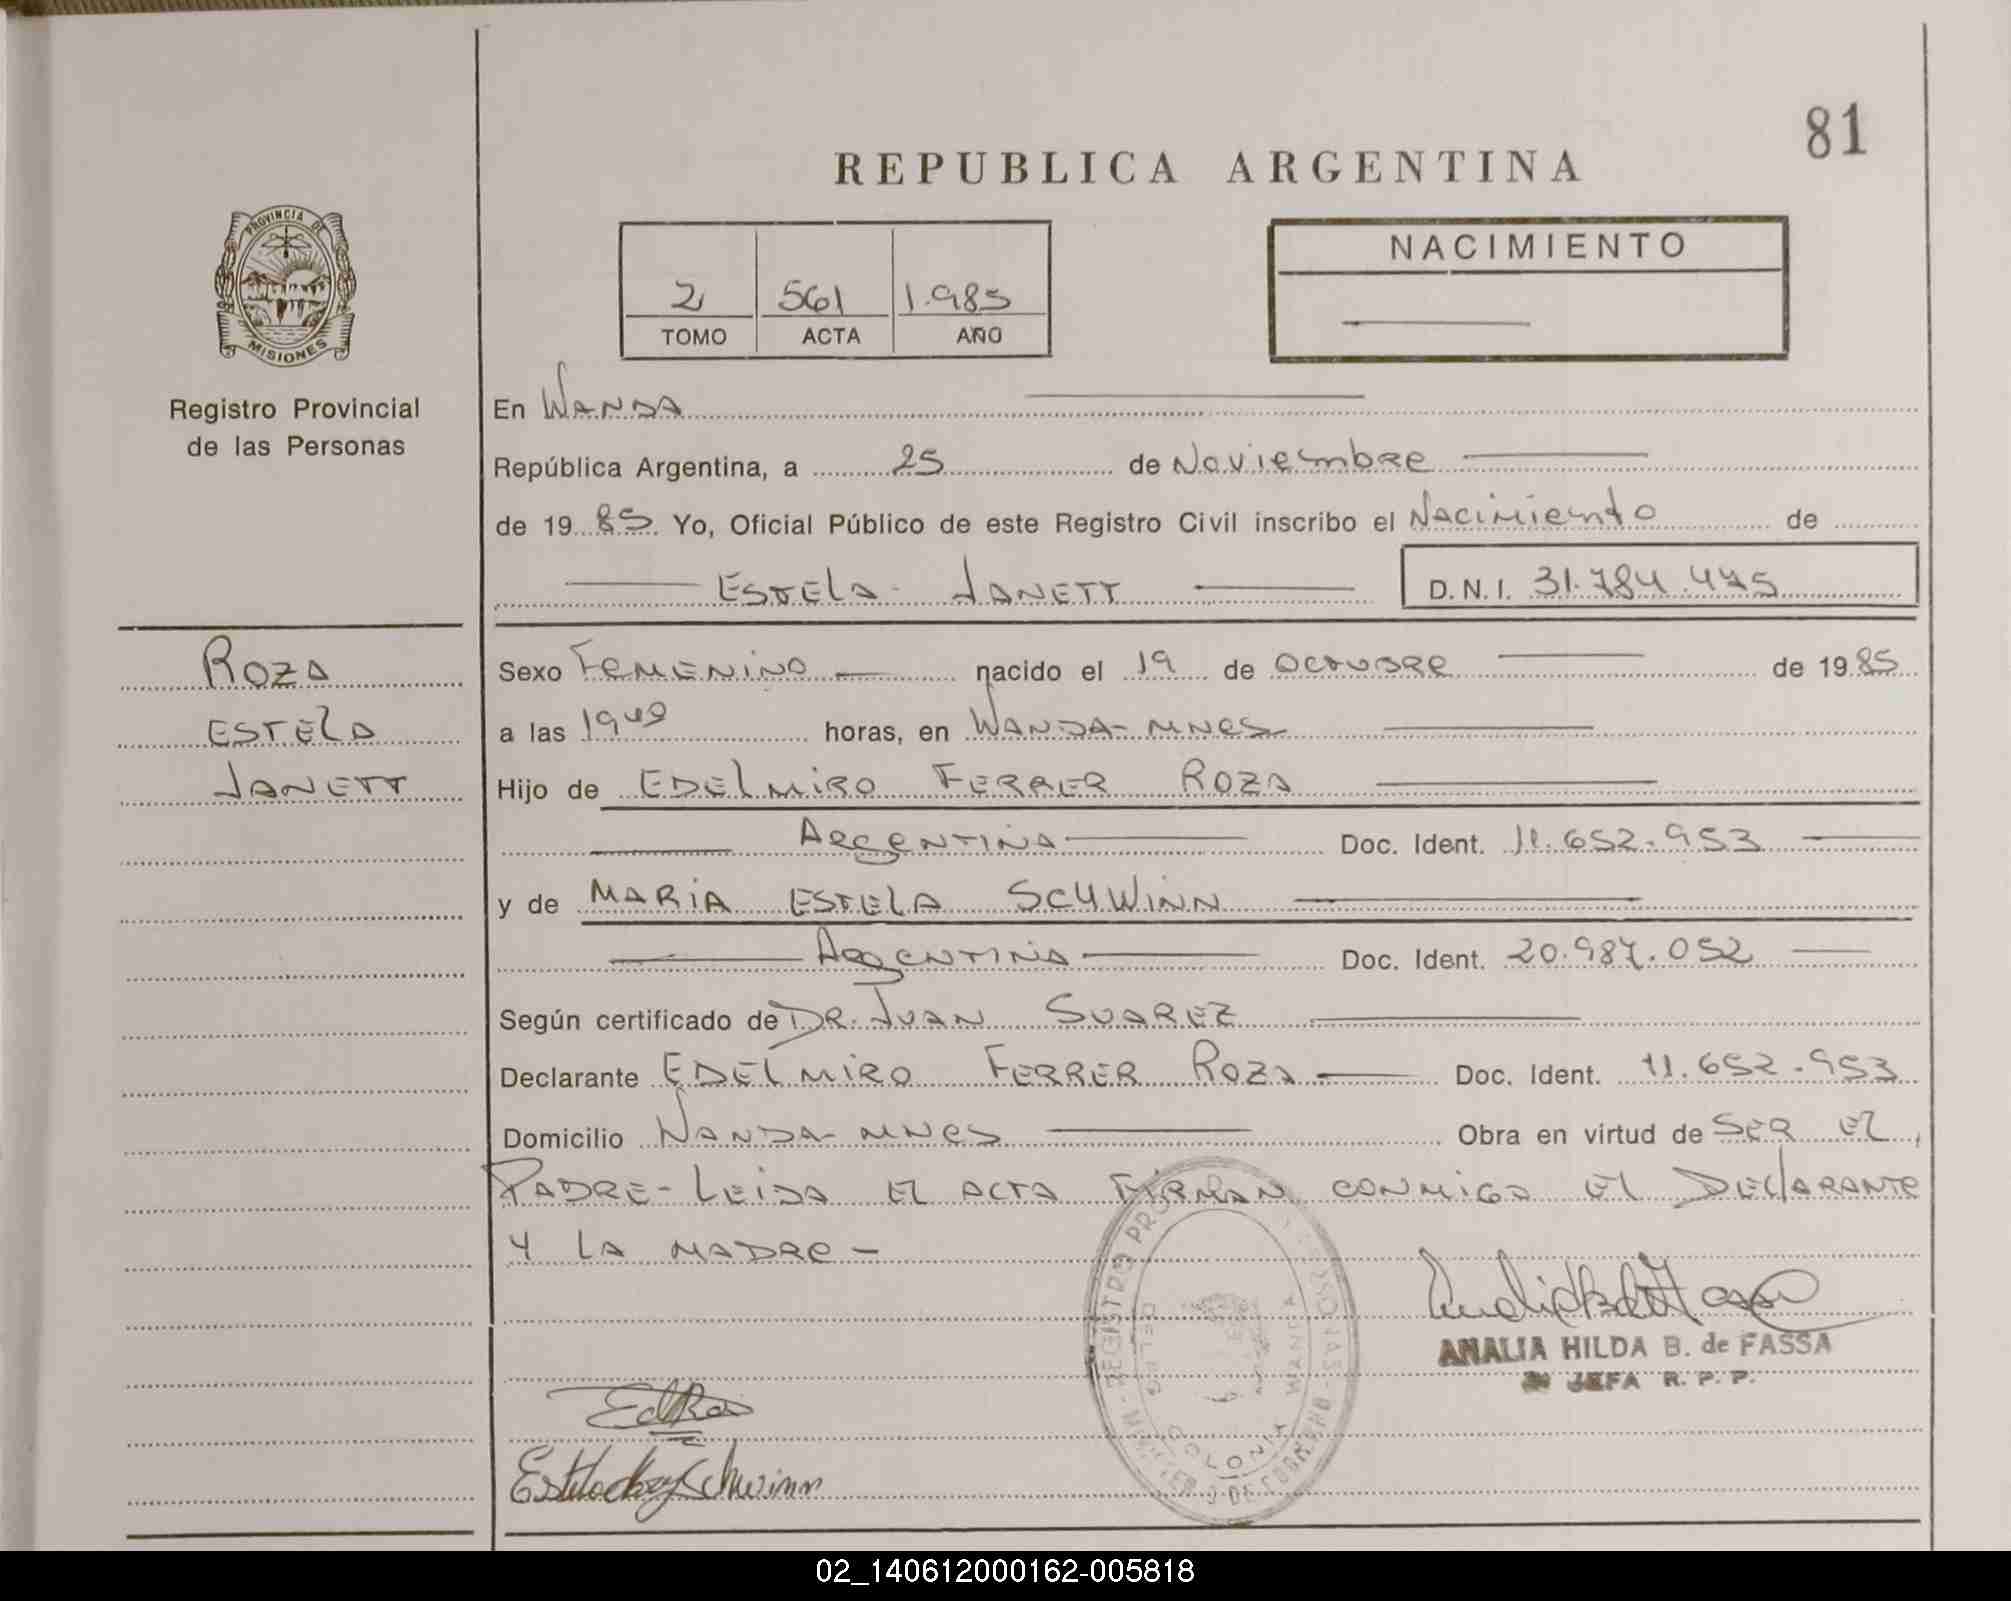 81
REPUBLICA ARGENTINA
PROVINCIA DE
MISIONES
Registro Provincial
de las Personas
2 561 1.985
TOMO ACTA AÑO
NACIMIENTO
En WANDA
República Argentina, a 25 de Noviembre
de 1985 Yo, Oficial Público de este Registro Civil inscribo el Nacimiento de
ESTELA JANETT D.N.I. 31.784.475
ROZA
ESTELA
JANETT
Sexo FEMENINO nacido el 19 de OCTUBRE de 1985
a las 19 horas, en WANDA-MNES
Hijo de EDELMIRO FERRER ROZA
ARGENTINA Doc. Ident. 11.652.953
y de MARIA ESTELA SCHWINN
ARGENTINA Doc. Ident. 20.987.052
Según certificado de DR. JUAN SUAREZ
Declarante EDELMIRO FERRER ROZA Doc. Ident. 11.652.953
Domicilio WANDA-MNES Obra en virtud de SER EL
PADRE- LEIDA EL ACTA FIRMAN CONMIGO EL DECLARANTE
Y LA MADRE-
ANALIA HILDA B. de FASSA
JEFA R. P. P.
COLONIA WANDA
Schwinn
02_140612000162-005818